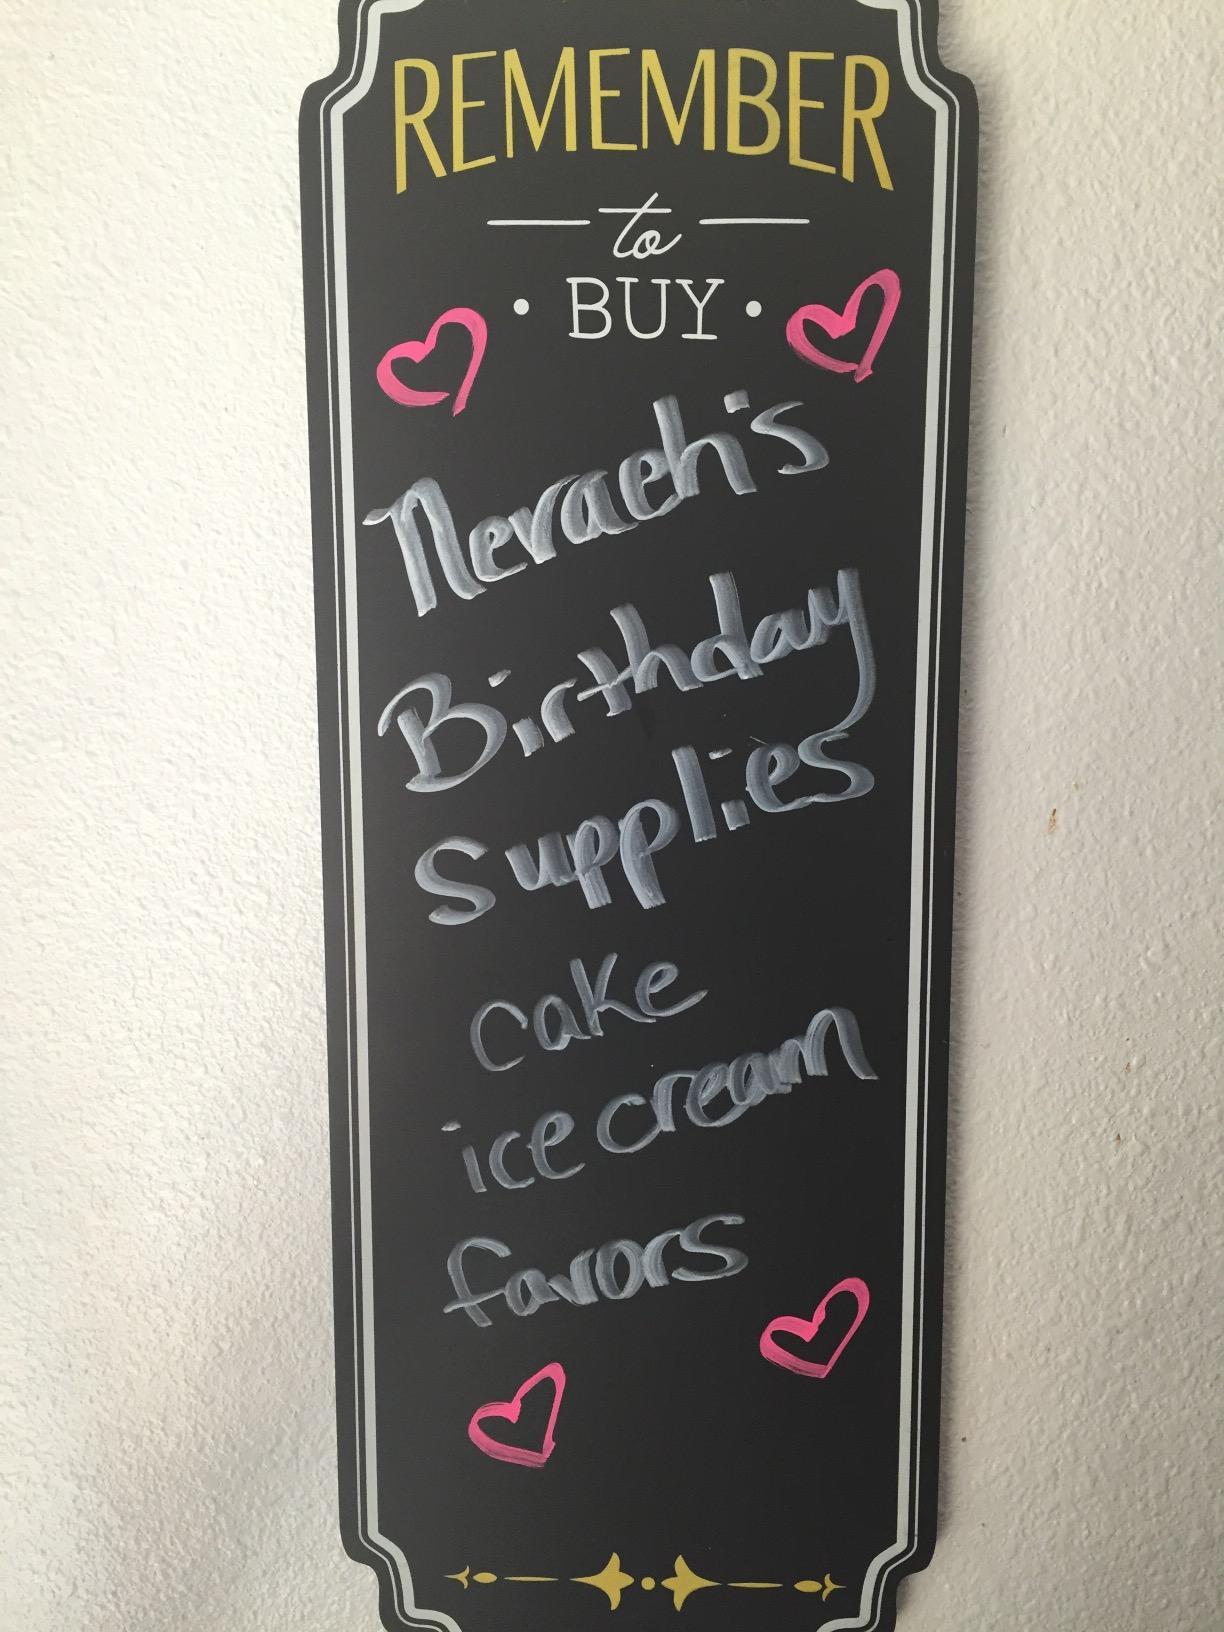 REMEMBER
to
• BUY •
Neraeh's
Birthday
Supplies
cake
ice cream
favors